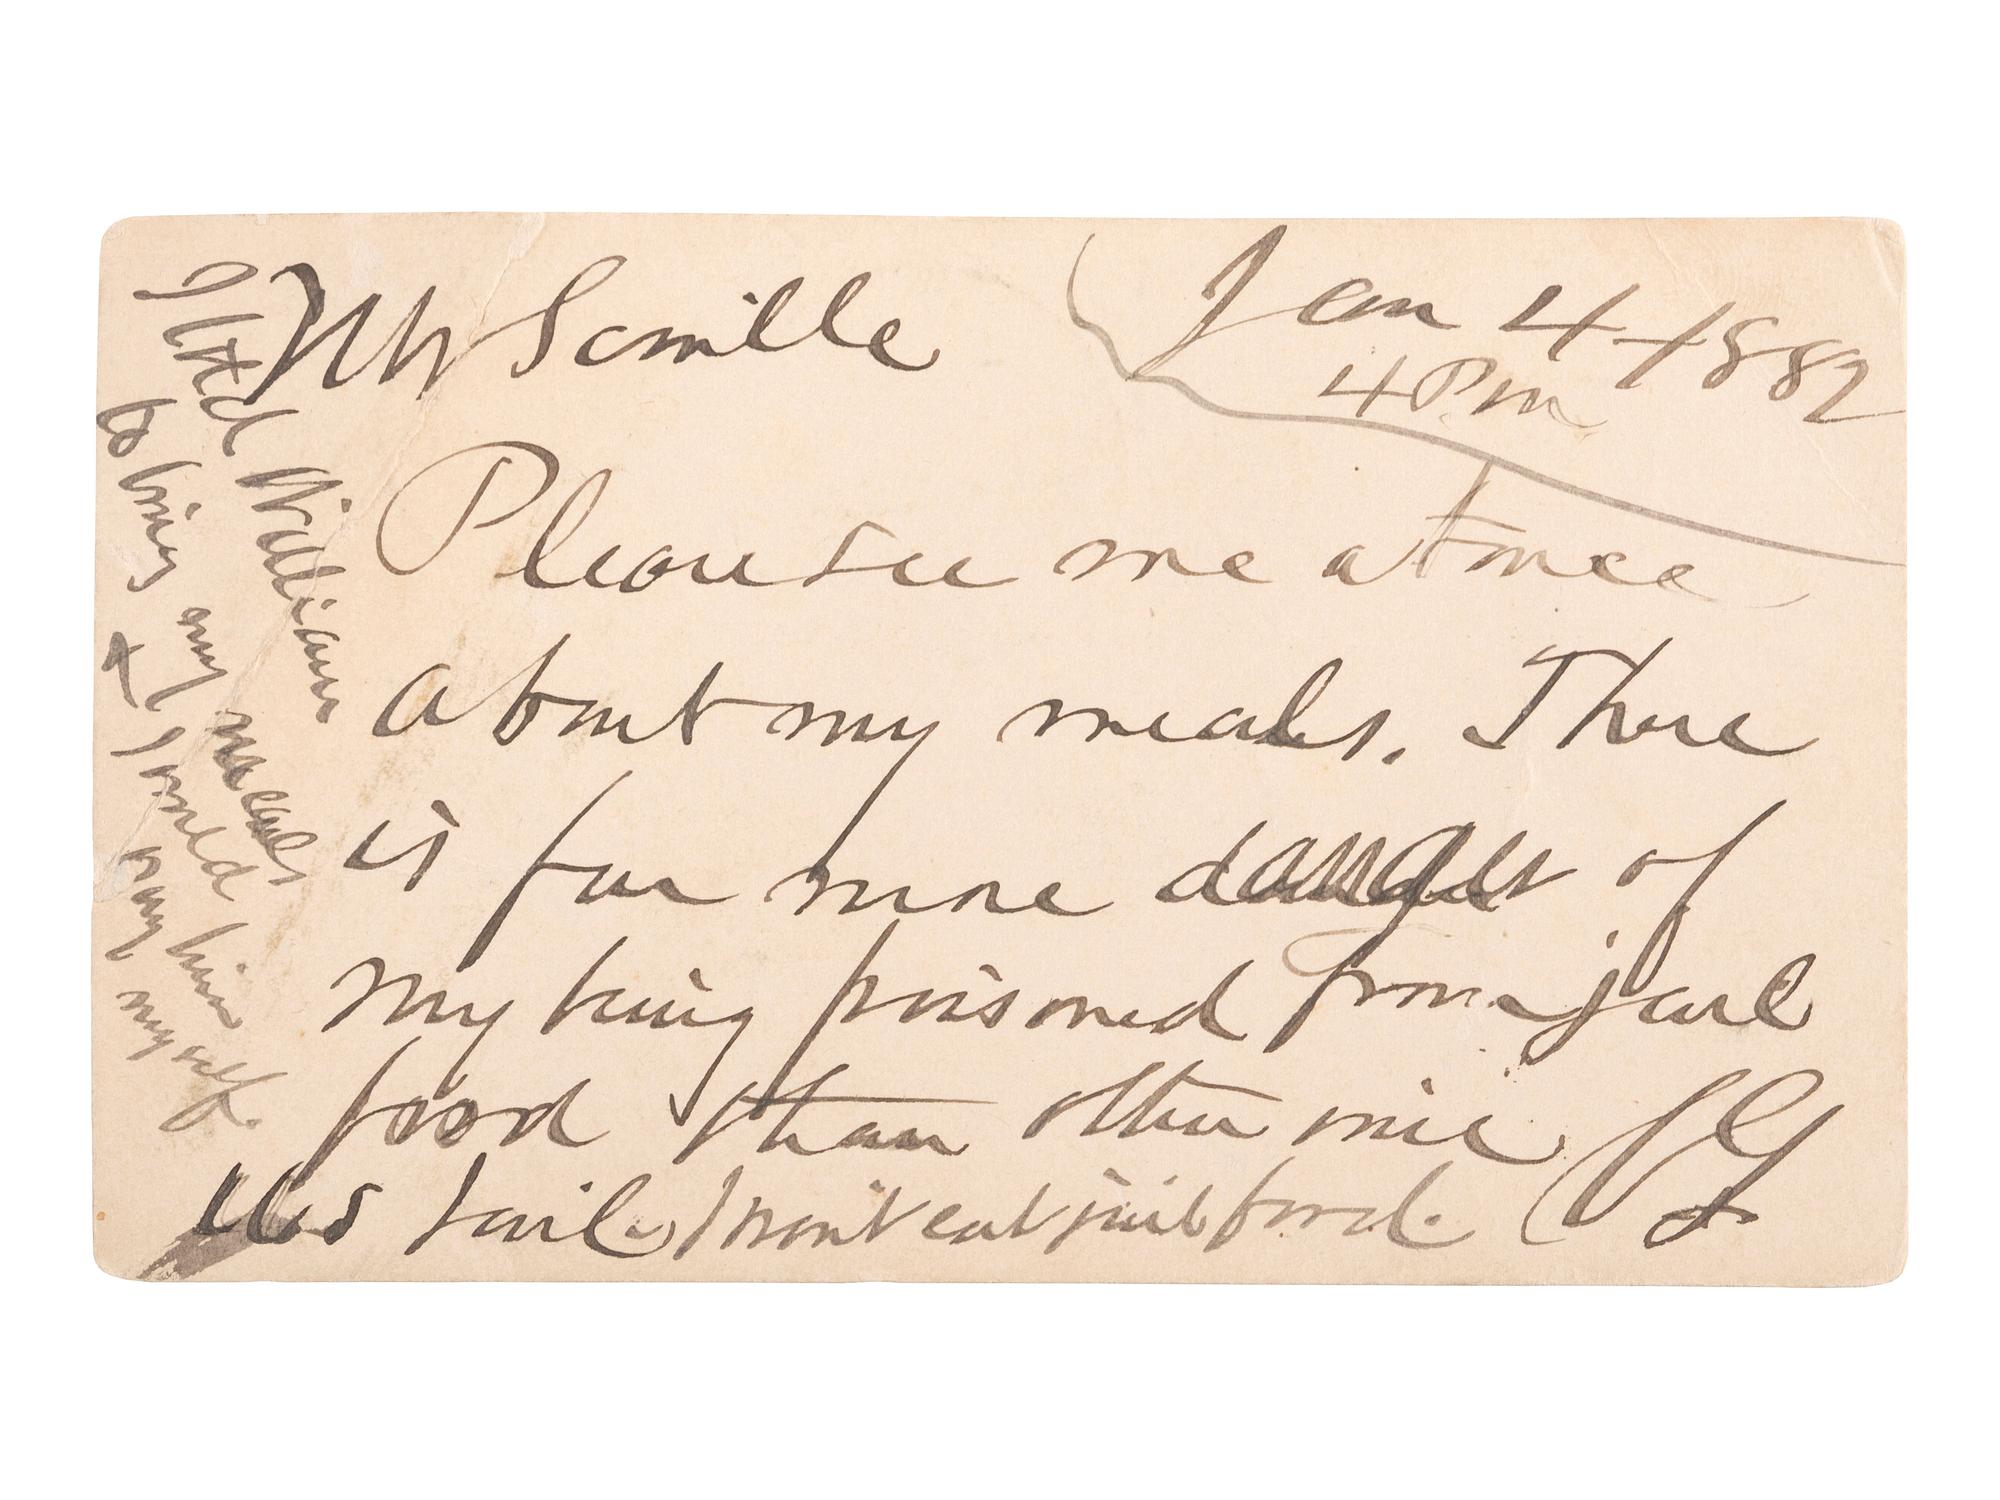 Mr Scoville
Jan 4 1882
4 P m
Please see me at once
about my meals. There
is far more danger of
my being poisoned from jail
food than otherwise
jail. I won't eat jail food.
I told Williams
to bring my meals
& I would him
pay myself.